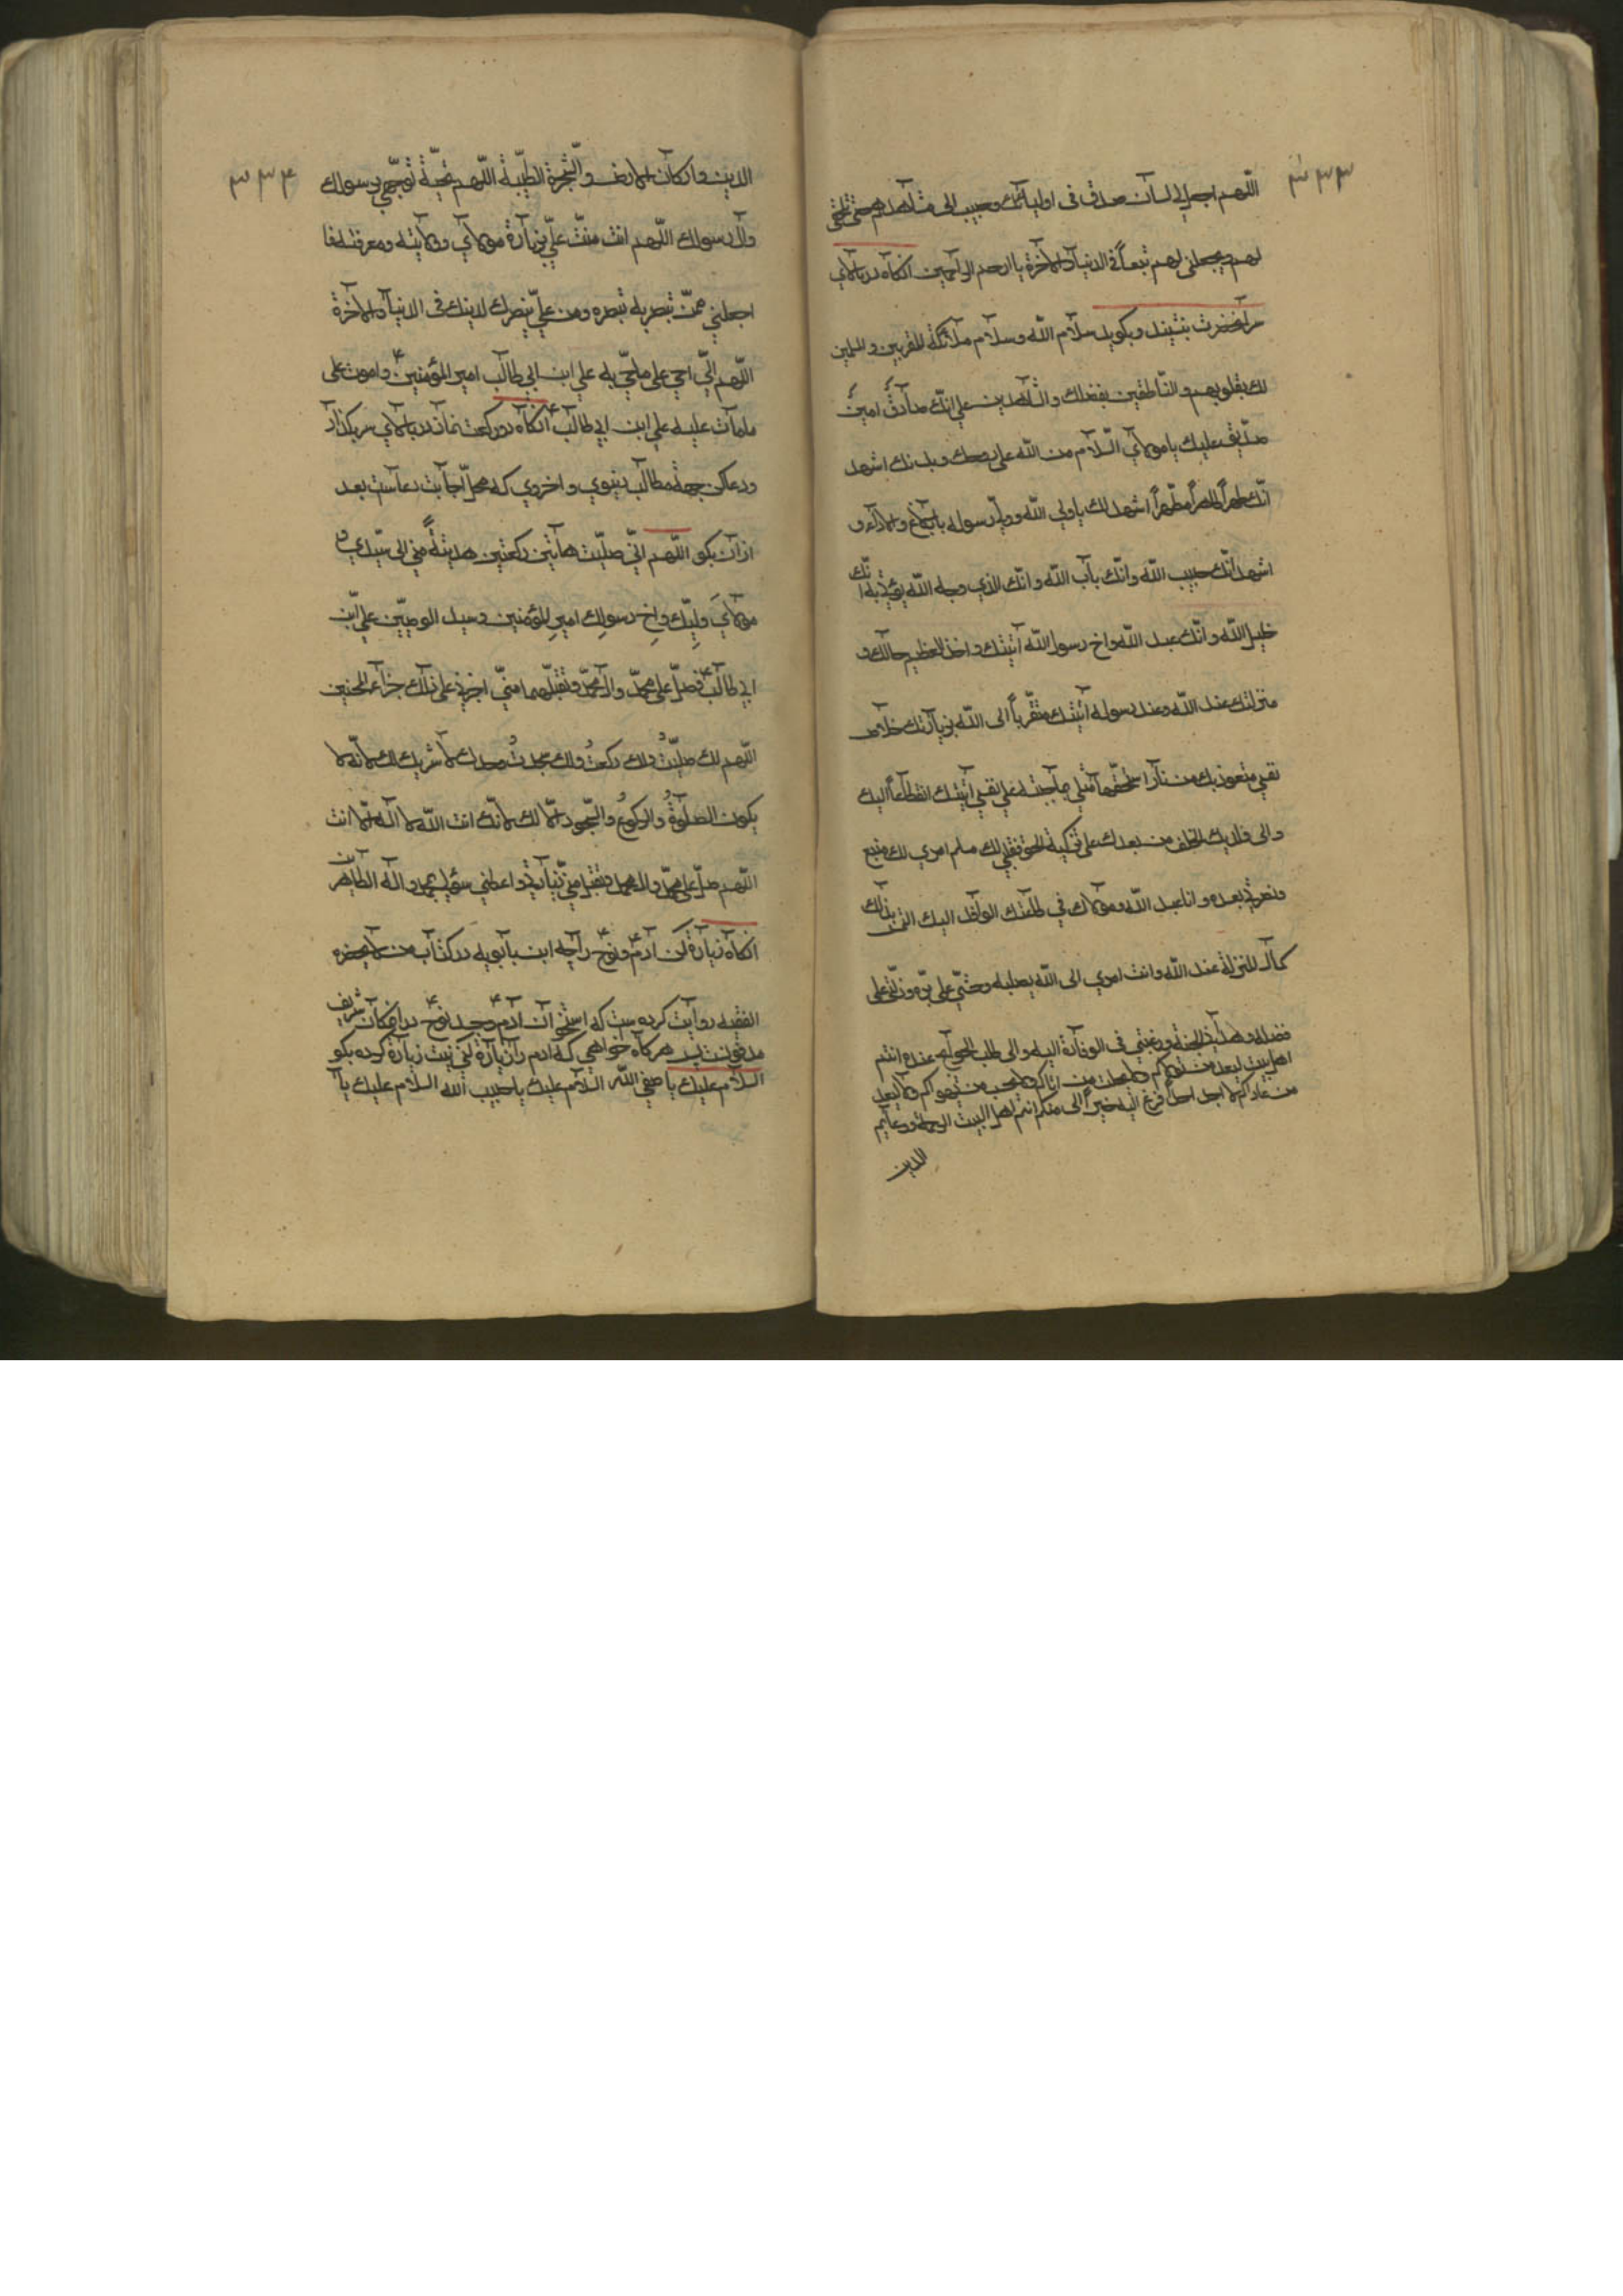 ۳۳۳
اللّهم اجعل لي لسان صدق في اوليائك وحبب الى مشاهدهم حتى تلحقني
لهم ويجعلني لهم تبعاً في الدنيا والآخرة يا ارحم الراحمين آنكاه در بالاي
سر آنحضرت بنشيند وبكويد سلام الله وسلام ملائكته المقربين والمسلمين
لك بقلوبهم والناطقين بفضلك والشاهدين على انّك صادق امين
صديق عليك يا مولاي السّلام من الله على روحك وبدنك اشهد
انّك طهراً طاهراً مطهراً اشهد لك يا ولي الله وولي رسوله بالبلاغ والاداء و
اشهد انّك حبيب الله وانّك باب الله وانّك الذي وجه الله يؤتى به انّك
خليل الله وانّك عبد الله واخ رسول الله اتيتك وافد العظيم حالك و
منزلتك عند الله وعند رسوله اتيتك متقرباً الى الله بزيارتك خلاص
نفسي متعوذ بك من نار استحقها مثلي بما جنيته على نفسي اتيتك انقطاعاً اليك
والى ولديك الخلف من بعدك على تزكية الحق فقلبي لك مسلم امري لك متبع
ونصرتي بعده وانا عبد الله ومولاك في طاعتك الوافد اليك التمس بذلك
كمال المنزلة عند الله وانت امري الى الله بصلبه وحثني على بره ودلّني على
فضله وهداني لحبه ورغبتي في الوفادة اليه والى طلب الحوائج عنده انتم
اهل بيت لسعد من تولاكم ولا يخاب من اتاكم ولا يخب من يهواكم ولا يسعد
من عاداكم لا اجد احداً افزع اليه خيراً لي منكم انتم اهل البيت الرحمة ودعايم
الدين
۳۳۴
الدين واركان الارض والشجرة الطيّبة اللّهم تحيّة توجهي برسولك
وال رسولك اللّهم انت مننت عليّ بزيارة مولاي وولايته ومعرفته فا
اجعلني ممن تنصر به تنصره ومن عليّ بنصرك لدينك في الدنيا والآخرة
اللّهم انّي احي على ما حيّ به علي ابن ابي طالب امير المؤمنين ع واموت على
ما مات عليه علي ابن ابي طالب ع آنكاه دو ركعت نماز در بالاي سر بكذار
ودعا كن جهة مطالب دنيوي واخروي كه محل اجابت دعاست بعد
از آن بكو اللّهم انّي صلّيت هاتين ركعتين هدية منّي الى سيّدي و
مولاي وليّك واخ رسولك امير المؤمنين وسيد الوصيّين علي ابن
ابي طالب ع فصلّ على محمّد وال محمّد وتقبلهما منّي اجزني على ذلك جزاء المحسنين
اللّهم لك صلّيتُ ولك ركعتُ ولك سجدتُ وحدك لا شريك لك لانّه لا
يكون الصلوةُ والركوعُ والسّجود الّا لك لانّك انت الله لا اله الّا انت
اللّهم صلّ على محمّد وال محمد وتقبّل منّي زيارتي واعطني سؤلي بمحمد واله الطاهرين
آنكاه زيارة كن آدم ع ونوح ع را چه ابن بابويه در كتاب من لا يحضره
الفقيه روايت كرده ست كه استخوان آدم ع وجسد نوح ع در آن مكان شريف
مدفونند پس هركاه خواهي كه آدم را زيارة كني نيت زيارة كرده بكو
السلام عليك يا صفي الله السلام عليك يا حبيب الله السلام عليك يا